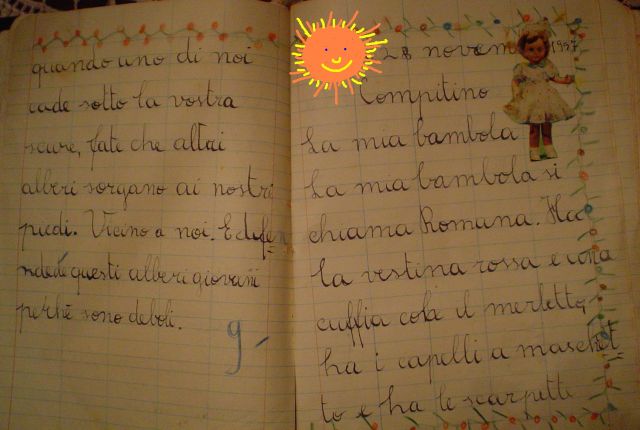 quando uno di noi
cade sotto la vostra
scure, fate che altri
alberi sorgano ai nostri
piedi. Vicino a noi. E difen
dedé questi alberi giovani
perchè sono deboli.
9-
28 novem 1957
Compitino
La mia bambola
La mia bambola si
chiama Romana. Ha
la vestina rossa e
cuffia col merletto,
ha i capelli a maschiet
to e ha le scarpette